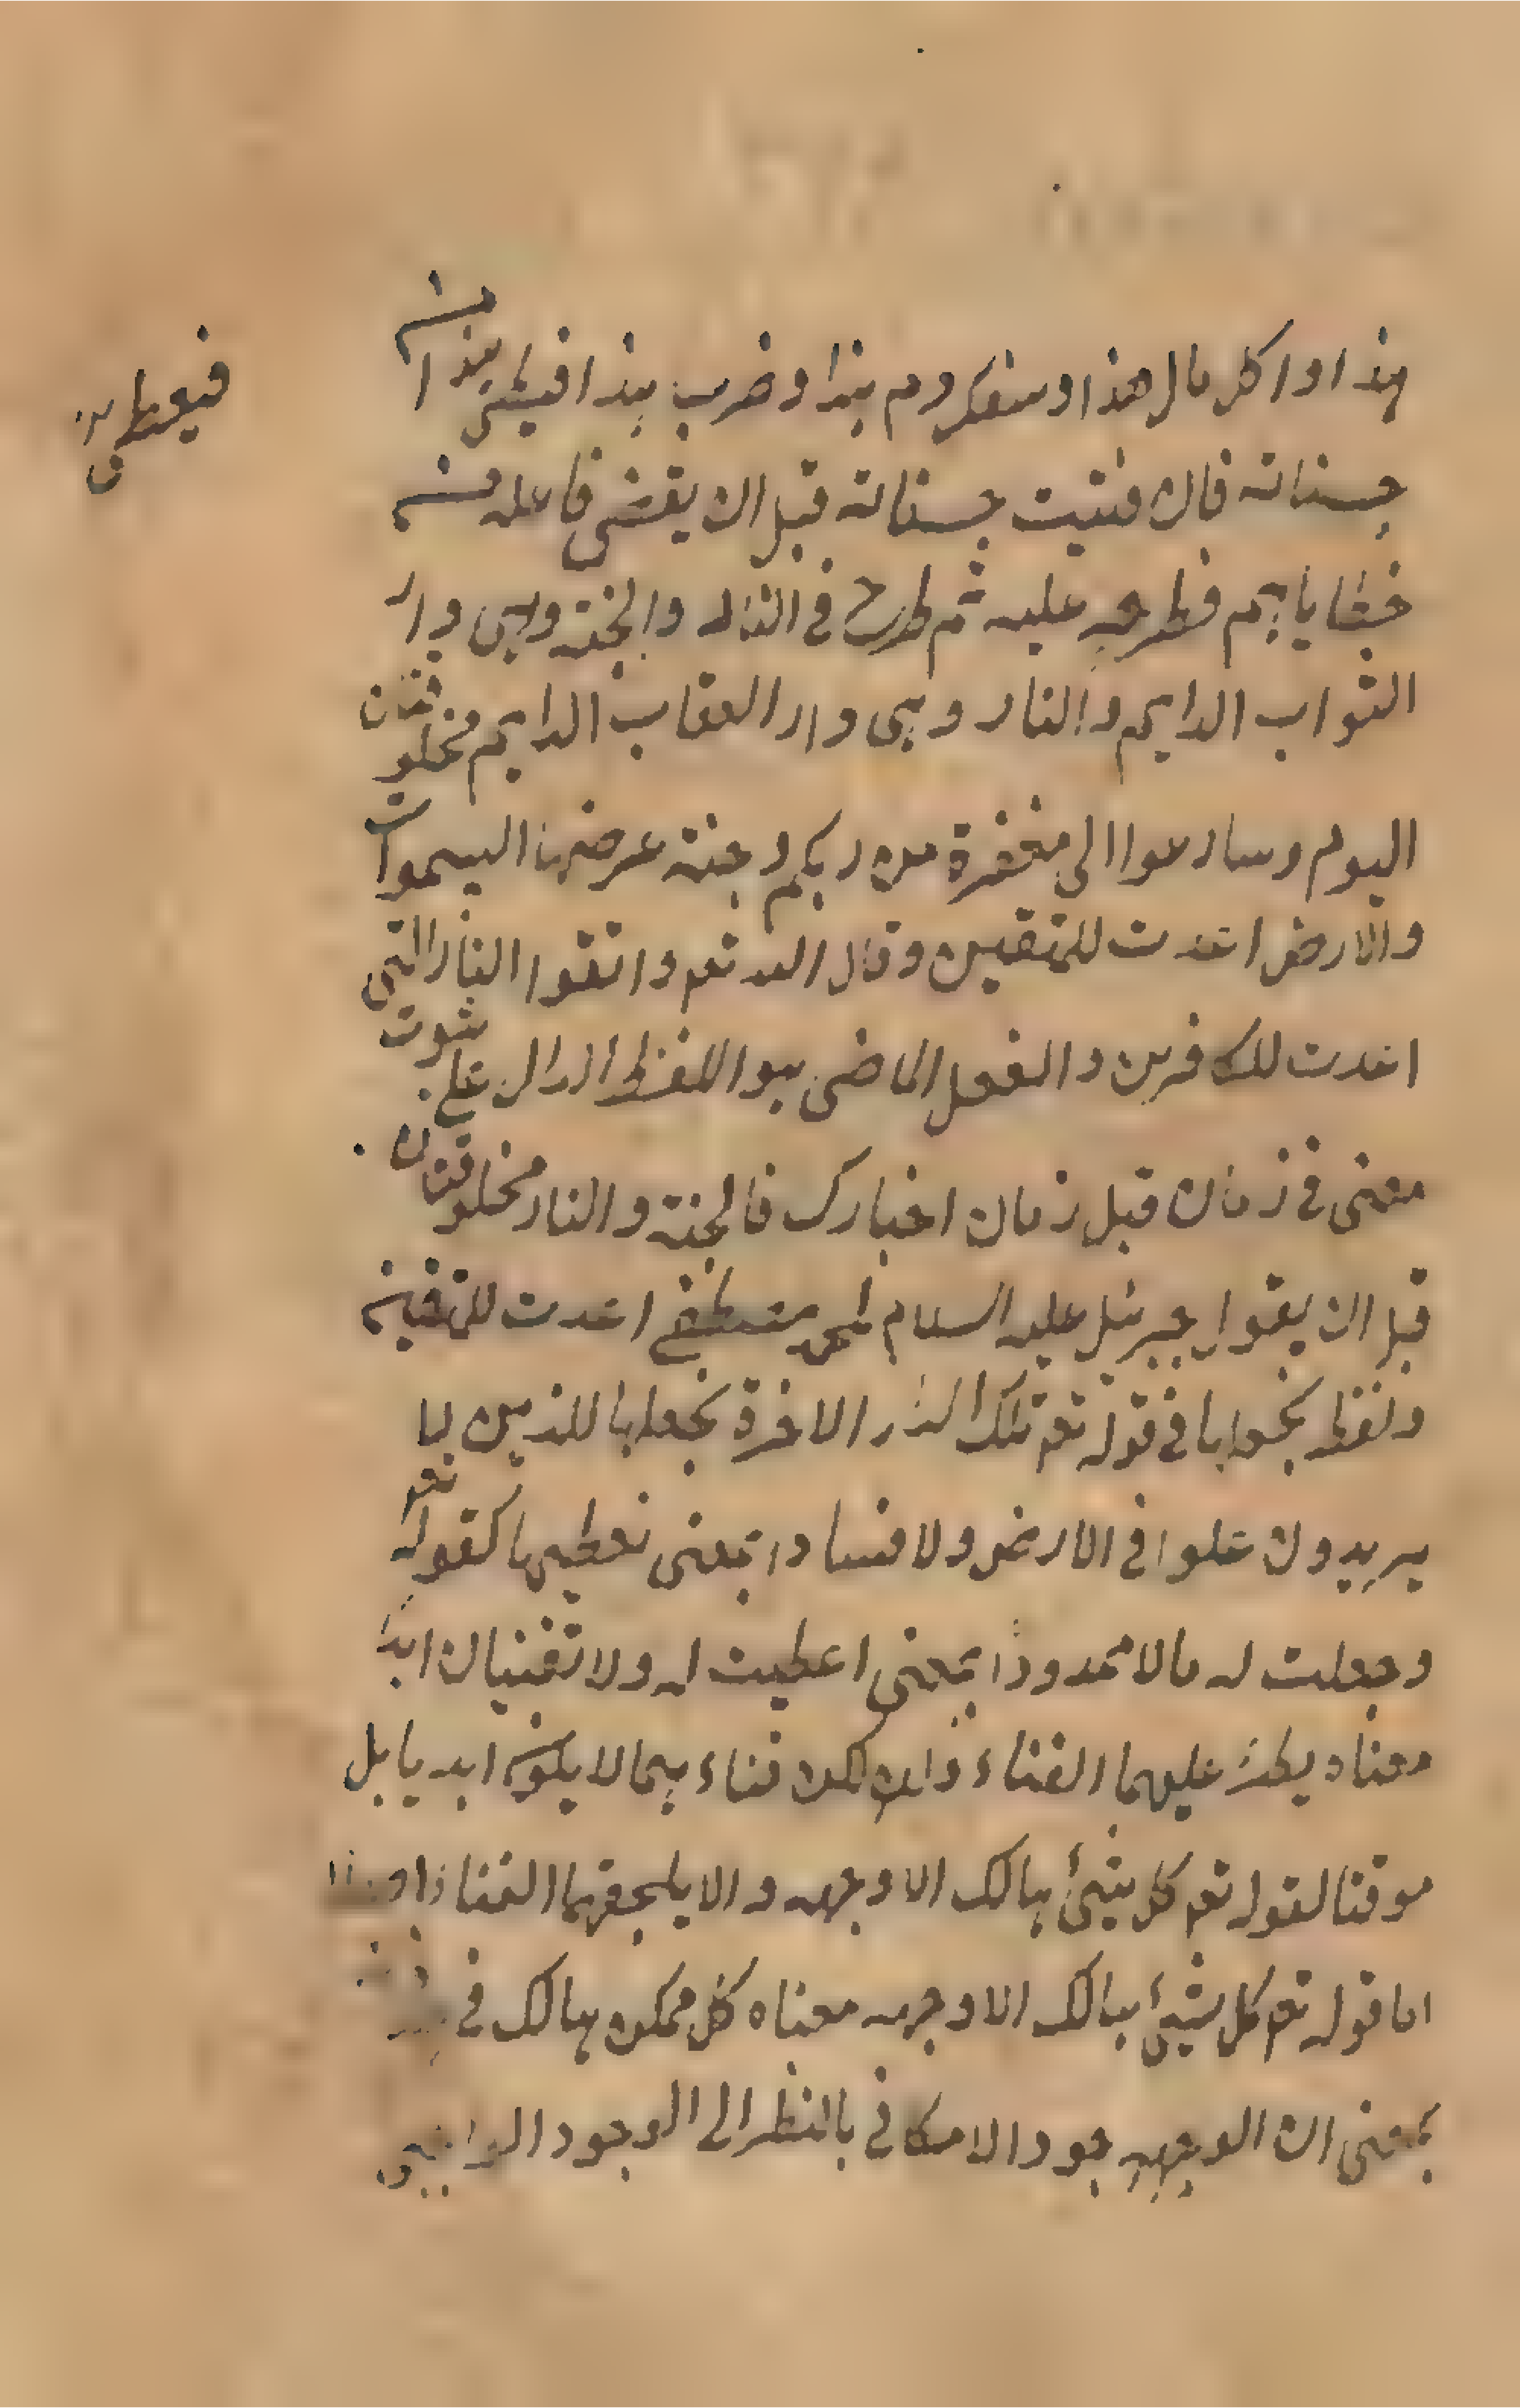 هذا واكل مال هذا وسفك دم هذا وضرب هذا فيعطى هذا من
حسناته فان فنيت حسناته قبل ان يقضى ما عليه من
خطاياهم فطرحه عليه ثم طرح في النار والجنة وهي دار
الثواب الدايم والنار وهى دار العقاب الدايم مخلوقتان
اليوم وسارعوا الى مغفرة من ربكم وجنة عرضها السموات
والارض اعدت للمتقين وقال الله تعم واتقوا النار التي
اعدت للكفرين والفعل الماضى هو اللفظ الدال على ثبوت
معنى في زمان قبل زمان اخبارك فالجنة والنار مخلوقتان
قبل ان يقول جبرئيل عليه السلام لمحمد مصطفى اعدت للمتقين
ولفظ نجعلها في قوله تعم تلك الدار الاخرة نجعلها للذين لا
يريدون علوا في الارض ولا فسادا بمعنى نعطيها كقوله تعم
وجعلت له مالا ممدودا بمعنى اعطيت له ولا تفنيان ابدا
معناه يطر عليهما الفناء وان لكن فناء هما لا يكون ابديا بل
موقتا لقوله تعم كل شيئ هالك الا وجهه والا يلحقهما الفنا
اما قوله تعم كل شيئ هالك الا وجهه معناه كل ممكن هالك في
بمعنى ان الوجود الامكانى بالنظر الى الوجود الواجبى
فيعطى